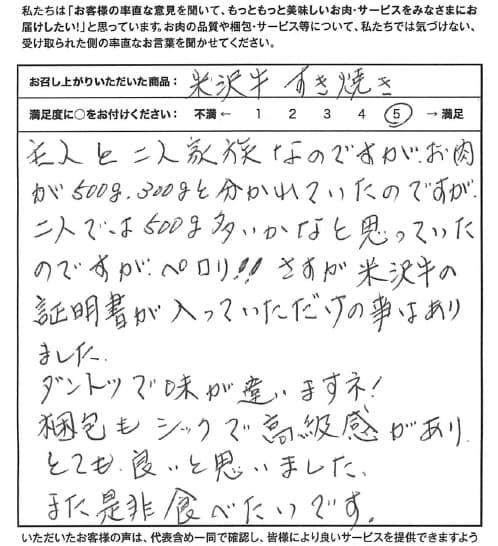 私たちは「お客様の率直な意見を聞いて、もっともっと美味しいお肉・サービスをみなさまにお
届けしたい!」と思っています。お肉の品質や梱包・サービス等について、私たちでは気づけない、
受け取られた側の率直なお言葉を聞かせてください。
お召し上がりいただいた商品： 米沢牛 すき焼き
満足度に○をお付けください： 不満 ← 1 2 3 4 5 → 満足
主人と二人家族なのですが、お肉
が500g、300gと分かれていたのですが、
二人では500g多いかなと思っていた
のですが、ペロリ!! さすが米沢牛の
証明書が入っていただけの事はあり
ました。
ダントツで味が違いますネ!
梱包もシックで高級感があり、
とても良いと思いました。
また是非食べたいです。
いただいたお客様の声は、代表含め一同で確認し、皆様により良いサービスを提供できますよう